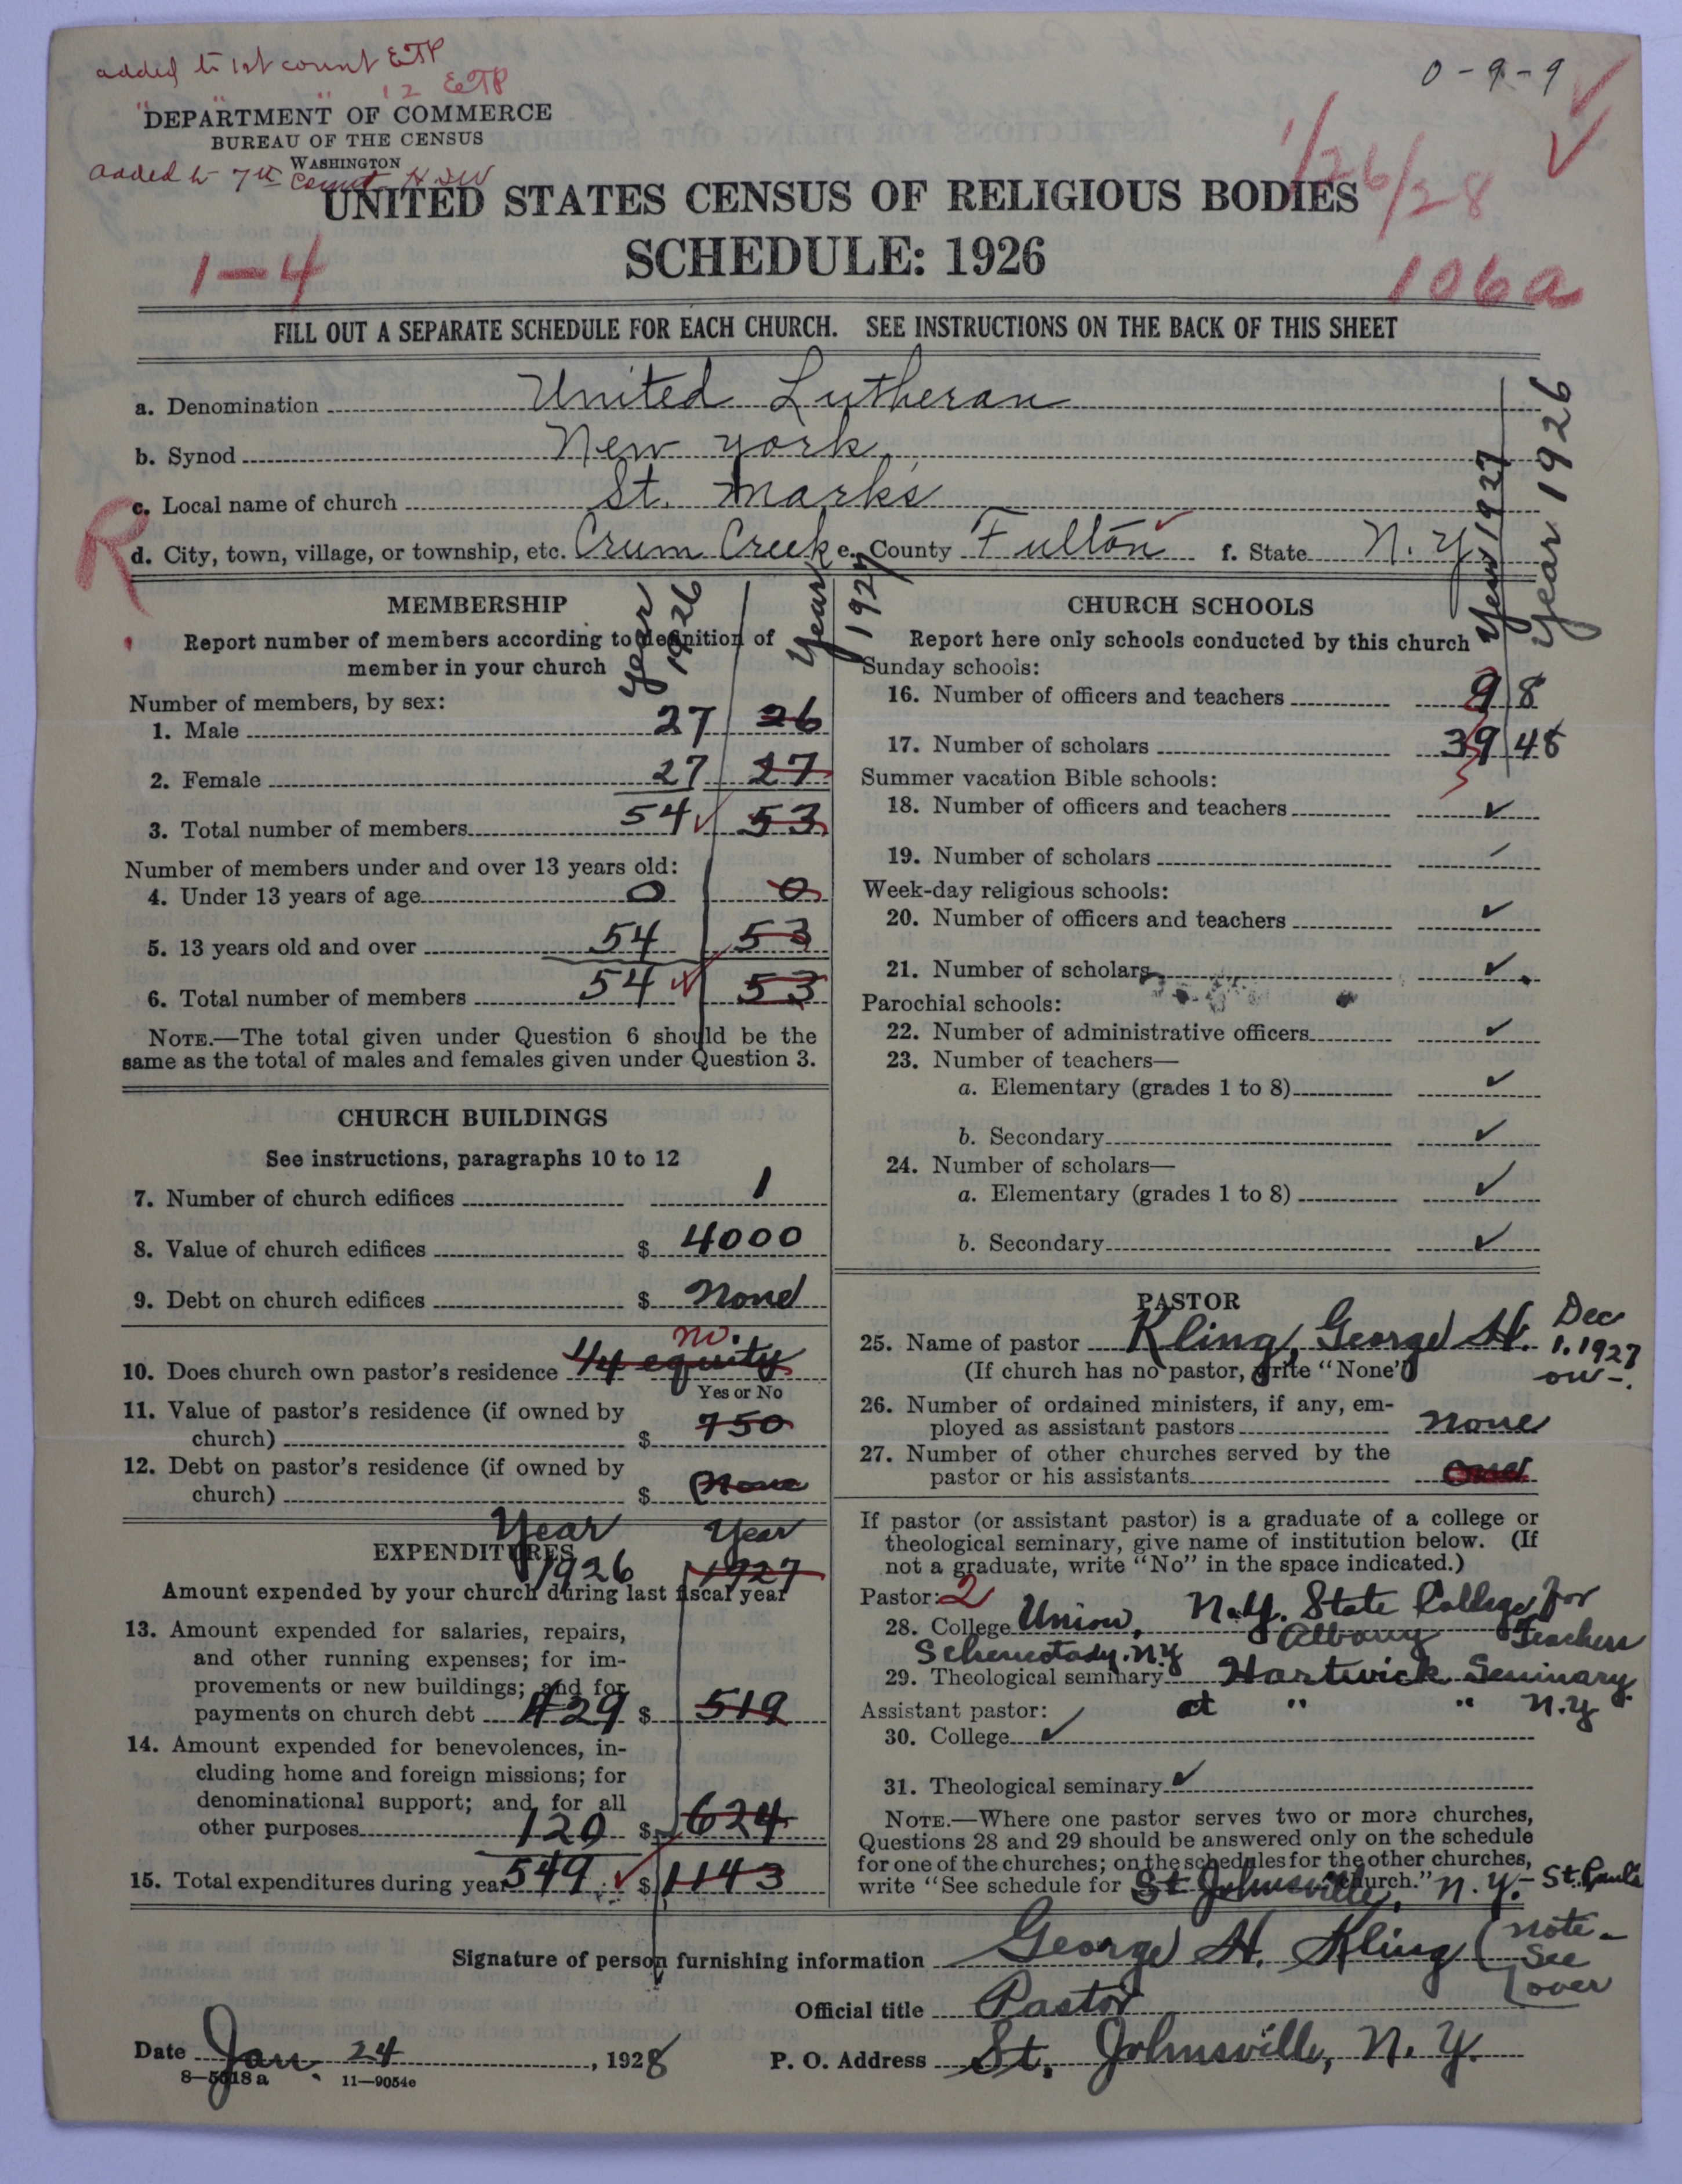 added to 1st count ETP
12 ETP
0-9-9
DEPARTMENT OF COMMERCE
BUREAU OF THE CENSUS
WASHINGTON
added to 7th Count HSW
1/26/28
UNITED STATES CENSUS OF RELIGIOUS BODIES
SCHEDULE: 1926
1-4
106a
FILL OUT A SEPARATE SCHEDULE FOR EACH CHURCH. SEE INSTRUCTIONS ON THE BACK OF THIS SHEET
a. Denomination United Lutheran
b. Synod New York
c. Local name of church St. Mark's
R
d. City, town, village, or township, etc. Crum Creek e. County Fulton f. State N.Y.
MEMBERSHIP
Year 1926
Year 1927
Report number of members according to definition of
member in your church
Number of members, by sex:
1. Male 27 26
2. Female 27 27
3. Total number of members 54 53
Number of members under and over 13 years old:
4. Under 13 years of age 0 0
5. 13 years old and over 54 53
6. Total number of members 54 53
NOTE.—The total given under Question 6 should be the
same as the total of males and females given under Question 3.
CHURCH BUILDINGS
See instructions, paragraphs 10 to 12
7. Number of church edifices 1
8. Value of church edifices $ 4000
9. Debt on church edifices $ None
no.
10. Does church own pastor's residence 1/4 equity
Yes or No
11. Value of pastor's residence (if owned by
church) $ 750
12. Debt on pastor's residence (if owned by
church) $ None
Year 1926
Year 1927
EXPENDITURES
Amount expended by your church during last fiscal year
13. Amount expended for salaries, repairs,
and other running expenses; for im-
provements or new buildings; and for
payments on church debt 429 $ 519
14. Amount expended for benevolences, in-
cluding home and foreign missions; for
denominational support; and for all
other purposes 120 $ 624
15. Total expenditures during year 549 $ 1143
CHURCH SCHOOLS
Year 1927
Year 1926
Report here only schools conducted by this church
Sunday schools:
16. Number of officers and teachers 9 8
17. Number of scholars 39 48
Summer vacation Bible schools:
18. Number of officers and teachers ✓
19. Number of scholars ✓
Week-day religious schools:
20. Number of officers and teachers ✓
21. Number of scholars ✓
Parochial schools:
22. Number of administrative officers ✓
23. Number of teachers—
a. Elementary (grades 1 to 8) ✓
b. Secondary ✓
24. Number of scholars—
a. Elementary (grades 1 to 8) ✓
b. Secondary ✓
PASTOR
25. Name of pastor Kling, George H. Dec 1, 1927 on-.
(If church has no pastor, write "None")
26. Number of ordained ministers, if any, em-
ployed as assistant pastors None
27. Number of other churches served by the
pastor or his assistants
If pastor (or assistant pastor) is a graduate of a college or
theological seminary, give name of institution below. (If
not a graduate, write "No" in the space indicated.)
Pastor: 2
28. College Union, N.Y. State College for
Schenectady. N.Y Albany Teachers
29. Theological seminary Hartwick Seminary
Assistant pastor: at " " N.Y
30. College ✓
31. Theological seminary ✓
NOTE.—Where one pastor serves two or more churches,
Questions 28 and 29 should be answered only on the schedule
for one of the churches; on the schedules for the other churches,
write "See schedule for St Johnsville, church." N.Y. - St. Paul's
Signature of person furnishing information George H. Kling (note - See over
Official title Pastor
Date Jan. 24, 1928 P. O. Address St. Johnsville, N.Y.
8—5618a 11—9054c